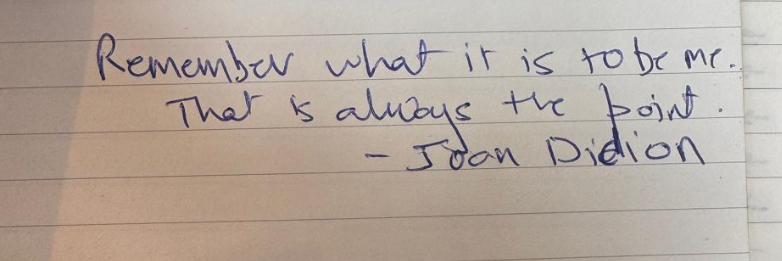 Remember what it is to be me.
That is always the point.
- Joan Didion